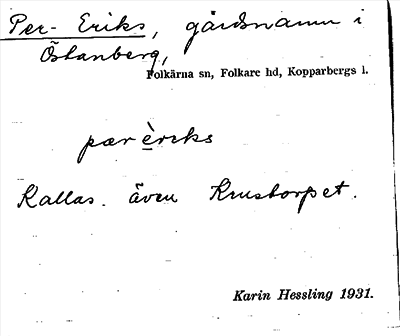 Per- Eriks, gårdsnamn i
Östanberg,
Folkärna sn, Folkare hd, Kopparbergs l.
pær èriks
Kallas även Krustorpet.
Karin Hessling 1931.